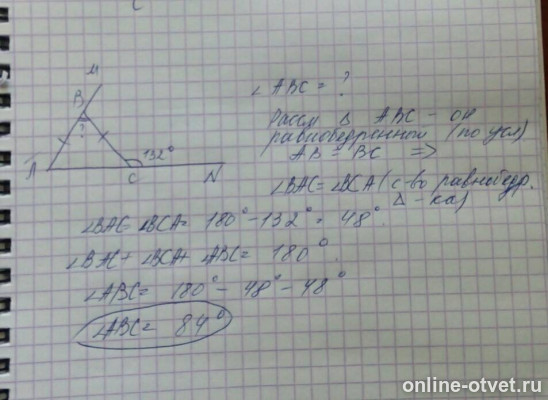 M
B
?
A
132°
C
N
∠ABC = ?
Рассм Δ ABC - он
равнобедренный (по усл)
AB = BC =>
∠BAC = ∠BCA (с-во равнобедр.
Δ-ка)
∠BAC = ∠BCA = 180° - 132° = 48°.
∠BAC + ∠BCA + ∠ABC = 180°.
∠ABC = 180° - 48° - 48°
∠ABC = 84°
online-otvet.ru